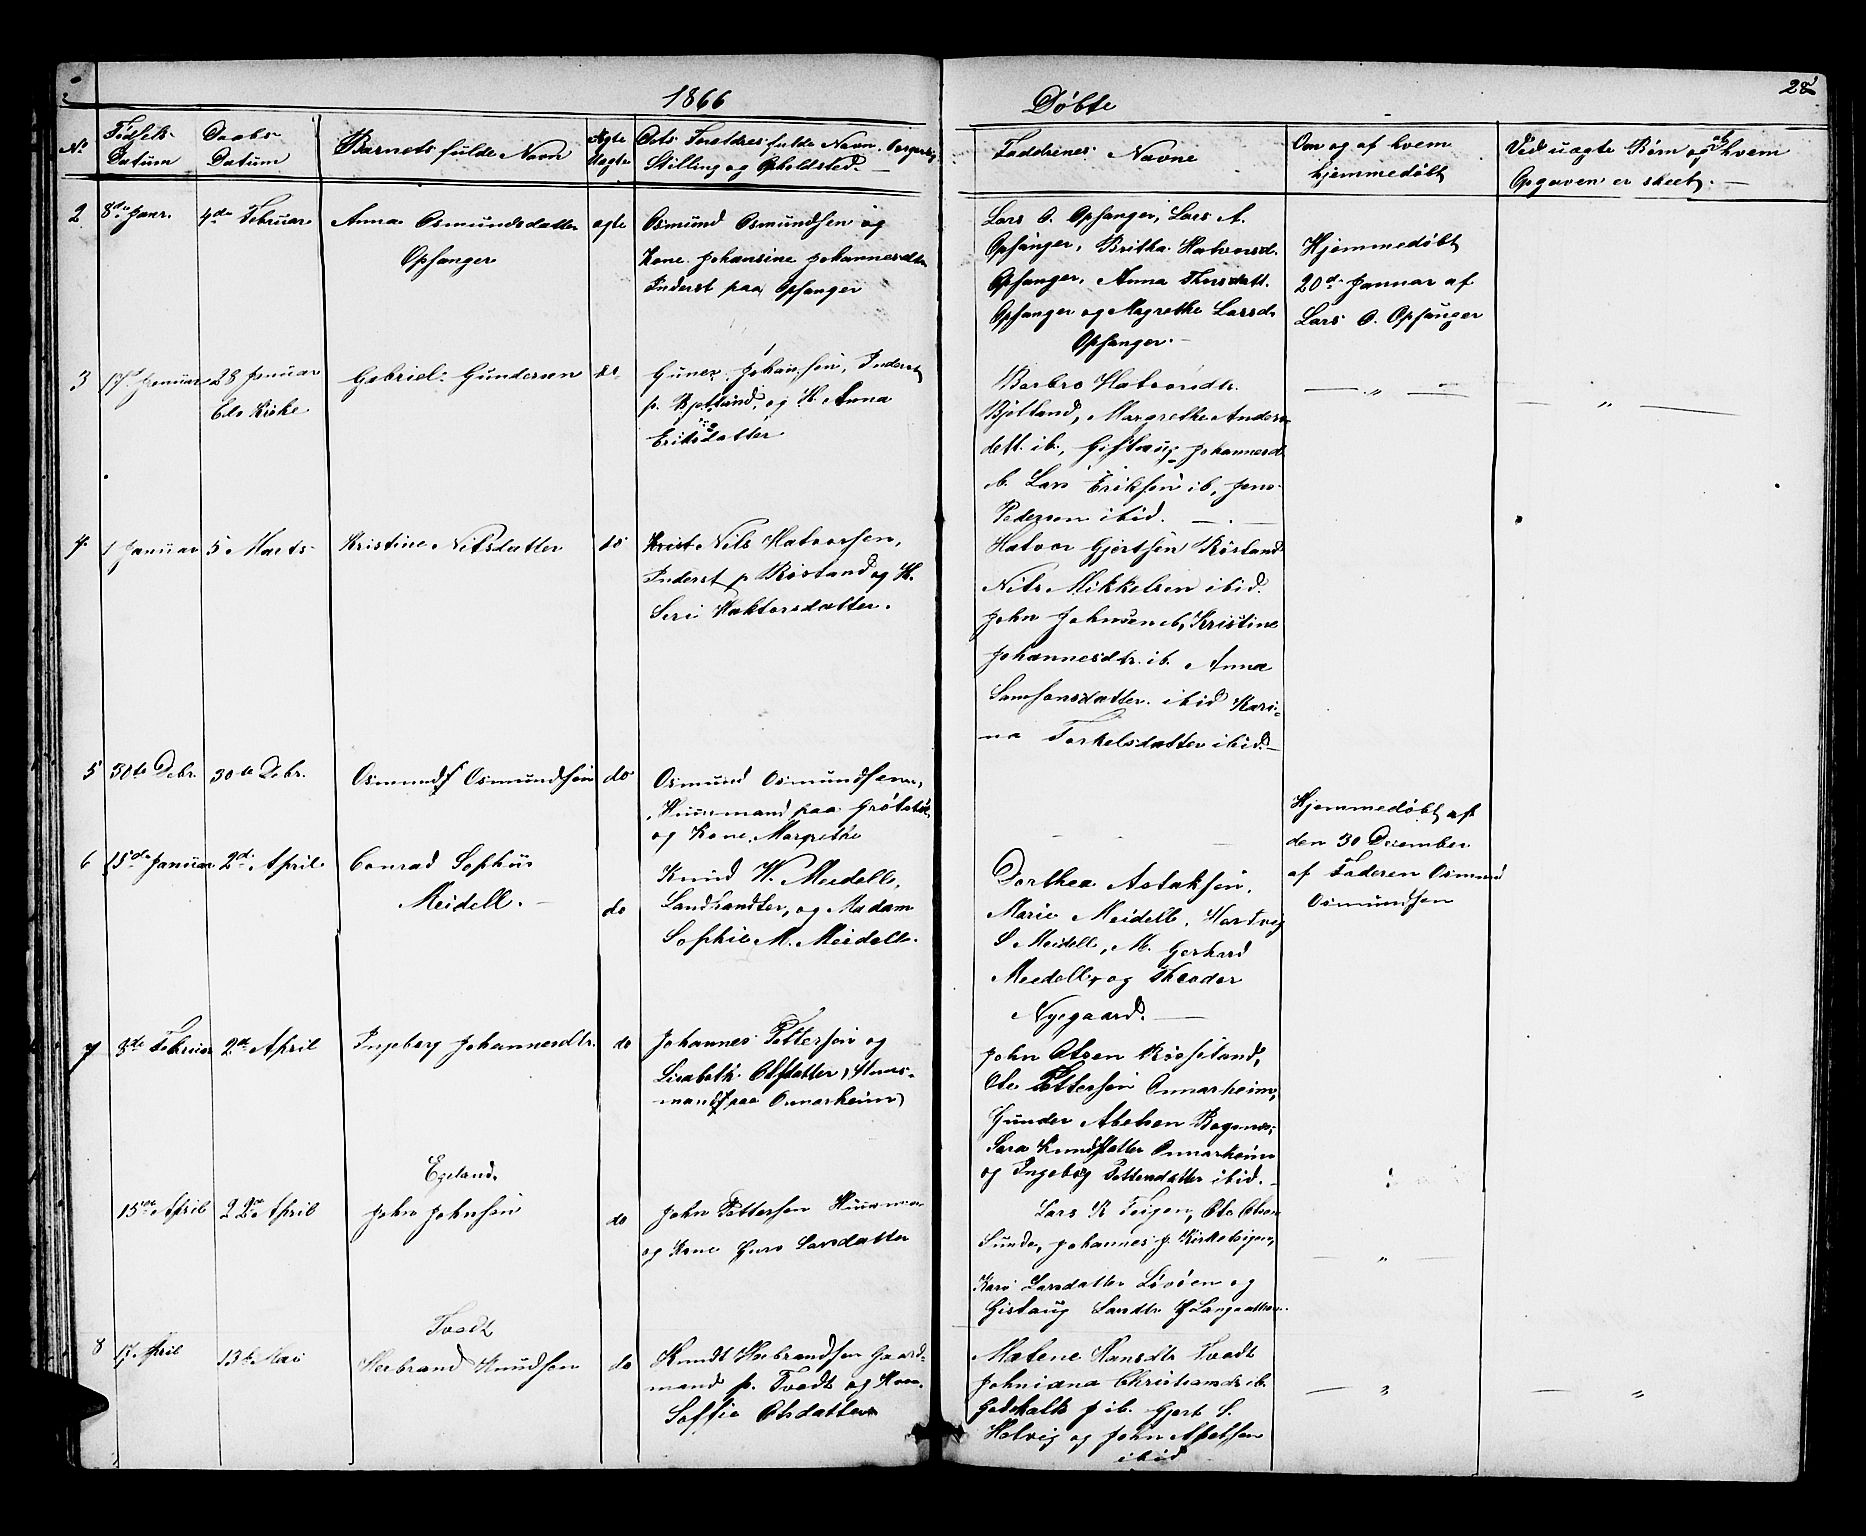 1866
Døbte
28
No
Fødsels-
Datum
Daabs
Datum
Barnets fulde Navn
Ægte
Uægte
Dets Foreldres fulde Navn, Borgerlig
Stilling og Opholdsted.
Faddrenes Navne
Om og af hvem
hjemmedøbt
Ved uægte Børn og af hvem
Opgaven er skeet.
2 8de Janr. 4de Februar Anna Osmundsdatter ægte Osmund Osmundsen og
Opsanger
Kone Johansine Johannesdtr
Inderst paa Opsanger
Lars O. Opsanger, Lars A.
Opsanger, Britha Halvorsd.
Opsanger, Anna Thorsdatt.
Opsanger og Magrethe Larsd.
Opsanger.
Hjemmedøbt
20d Januar af
Lars O. Opsanger
3 17 Januar 28 Januar Gabriel Gundersen do Guner Johansen, Inderst
Eds Kirke
p. Bjelland, og K. Anna
Eriksdatter
Barbro Halvordtr.
Bjelland, Margrethe Anders-
datt. ib., Gistaug Johannesd.
ib. Lars Eriksen ib, Jens
Pedersen ibid.
4 1 Januar 5 Marts Kristine Nilsdatter do Krist Nils Halvorsen,
Inderst p Røsland og K.
Seri Haktorsdatter.
Halvor Gjertsen Røsland
Nils Mikkelsen ibid.
John Johnsen ib, Kristine
Johannesdtr. ib. Anna
Samsonsdatter ibid Kari-
na Torkelsdatter ibid.
5 30te Debr. 30te Debr. Osmund Osmundsen do Osmund Osmundsen,
Huusmand paa Grøtstøl
og Kone Margrethe
Hjemmedøbt af
den 30 December
af Faderen Osmund
Osmundsen
6 15de Januar 2d. April Conrad Sophus
Meidell.
do
Knud W. Meidell,
Landhandler, og Madam
Sophie M. Meidell.
Dorthea Aslaksen,
Marie Meidell, Hartvig
S Meidell, M. Gerhard
Meidell, og Theodor
Nyegaard.
7 3de Februar 2de April Ingeborg Johannesdtr. do Johannes Pettersen og
Lisabeth Olsdatter, Huus-
mandsf paa Onnarheim
John Olsen Røssland,
Ole Pettersen Onnarheim,
Gunder Abelsen
Sara Knudsdatter Onnarheim
og Ingeborg Pettersdatter ibid.
Egeland.
15de April 22de April John Johnsen do John Pettersen Huusman
og Kone Guro Larsdatter
Lars K Teigen, Ole Olsen
Sunde, Johannes J. Kirketeigen,
Kari Larsdatter Løvøen og
Gistaug Larsdtr
Tvedt
8 17. April 13de Mai Herbrand Knudsen do Knudt Herbrandsen Gaard-
mand p. Tvedt og Kone
Soffie Olsdatter
Malene Hansdtr Tvedt
Johniana Christiansdr ib.
Godskalk J ib. Gjert S.
Helvig og John Apelsen
ibid